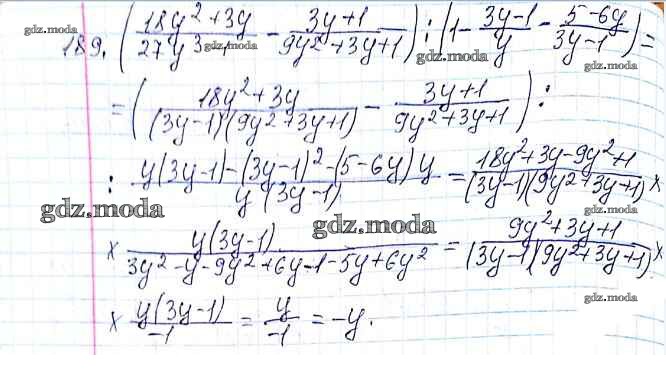 gdz.moda
189. ( (18y²+3y)/(27y³-1) - (3y+1)/(9y²+3y+1) ) : ( 1 - (3y-1)/y - (5-6y)/(3y-1) ) =
gdz.moda
gdz.moda
= ( (18y²+3y)/((3y-1)(9y²+3y+1)) - (3y+1)/(9y²+3y+1) ) :
gdz.moda
: (y(3y-1)-(3y-1)²-(5-6y)y)/(y(3y-1)) = (18y²+3y-9y²+1)/((3y-1)(9y²+3y+1)) ×
gdz.moda
gdz.moda
gdz.moda
× (y(3y-1))/(3y²-y-9y²+6y-1-5y+6y²) = (9y²+3y+1)/((3y-1)(9y²+3y+1)) ×
gdz.moda
× (y(3y-1))/(-1) = y/(-1) = -y.